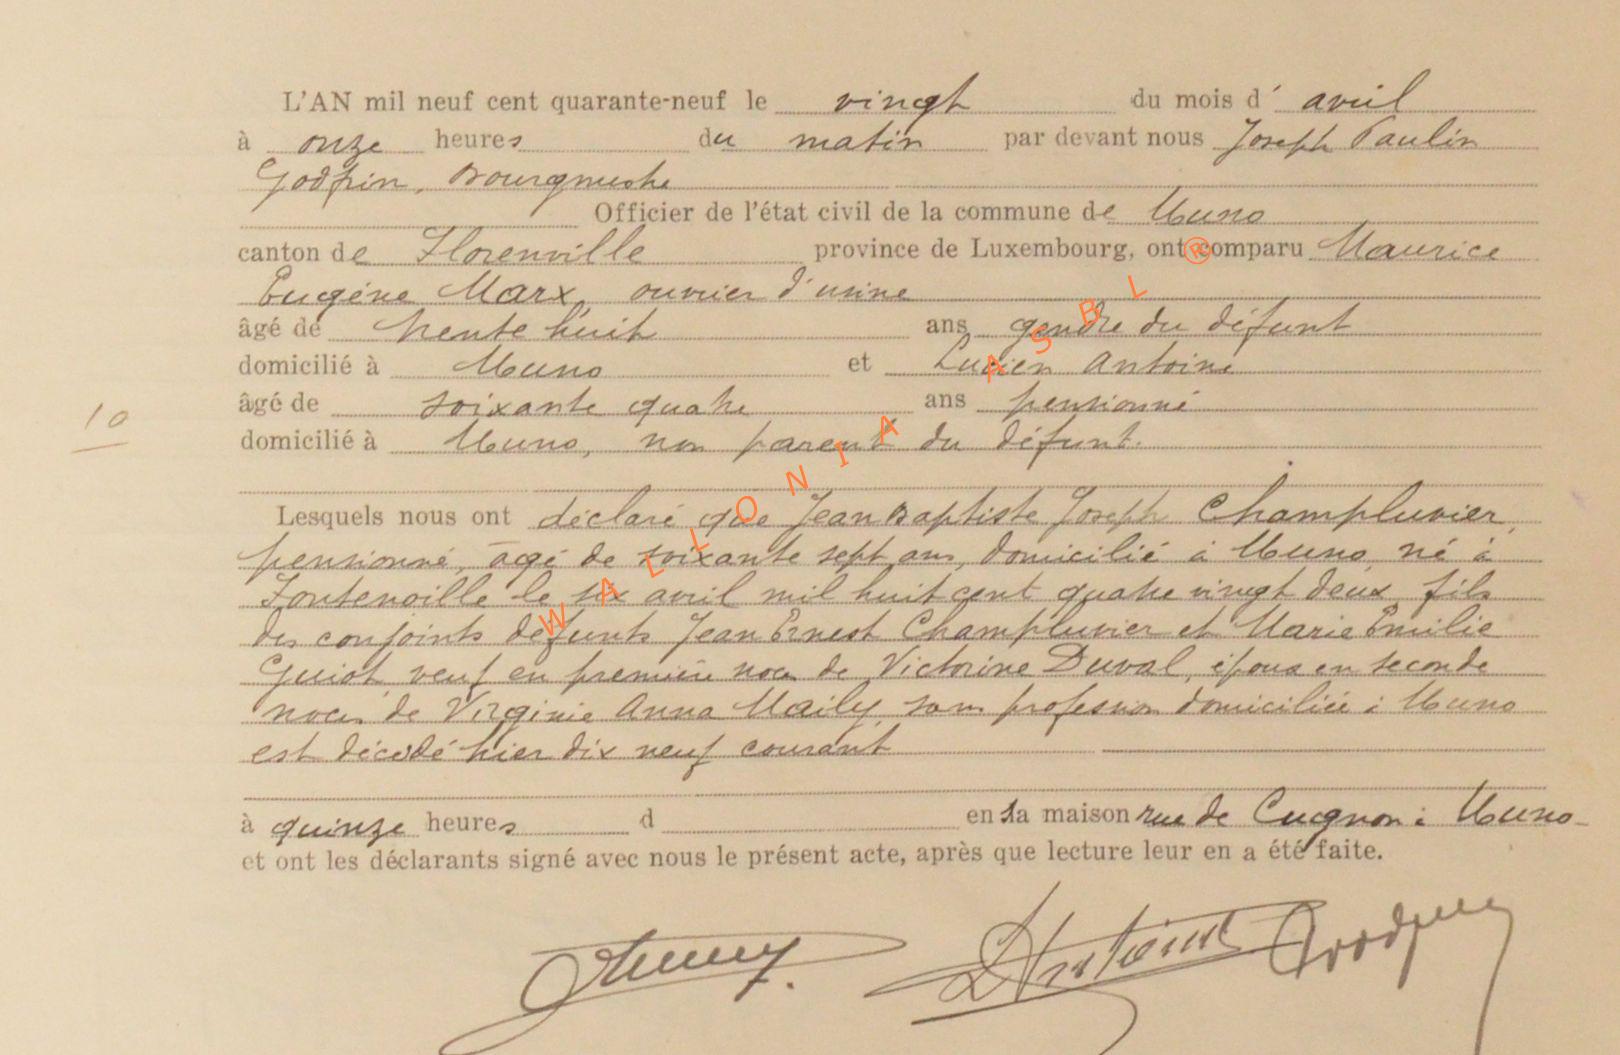 L'AN mil neuf cent quarante-neuf le vingt du mois d' avril
à onze heures du matin par devant nous Joseph Paulin
Godfrin, Bourgmestre
Officier de l'état civil de la commune de Muno
canton de Florenville province de Luxembourg, ont comparu Maurice
Eugène Marx, ouvrier d'usine
âgé de trente huit ans gendre du défunt
domicilié à Muno et Lucien Antoine
âgé de soixante quatre ans pensionné
10
domicilié à Muno, non parent du défunt.
Lesquels nous ont déclaré que Jean Baptiste Joseph Champluvier,
pensionné, âgé de soixante sept ans, domicilié à Muno, né à
Fontenoille le six avril mil huit cent quatre vingt deux, fils
des conjoints défunts Jean Ernest Champluvier et Marie Emilie
Guiot, veuf en première noce de Victorine Duval, époux en seconde
noces de Virginie Anna Maily, sans profession domiciliée à Muno
est décédé hier dix neuf courant
à quinze heures d en sa maison rue de Cugnon à Muno
et ont les déclarants signé avec nous le présent acte, après que lecture leur en a été faite.
LAntoine Godfrin
WALLONIA ASBL ®